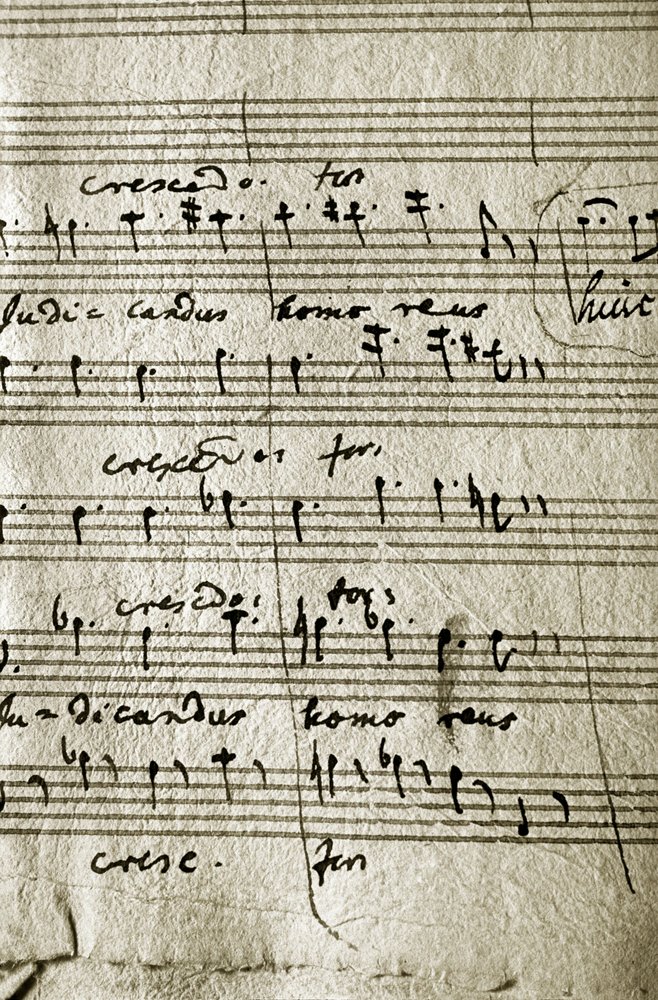 crescdo. for
Judi= candus homo reus
huic
crescdo: for:
crescdo: for:
Ju=dicandus homo reus
cresc. for